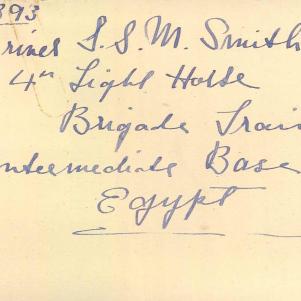 393
river S. S. M. Smith
4th Light Horse
Brigade Train
Intermediate Base
Egypt